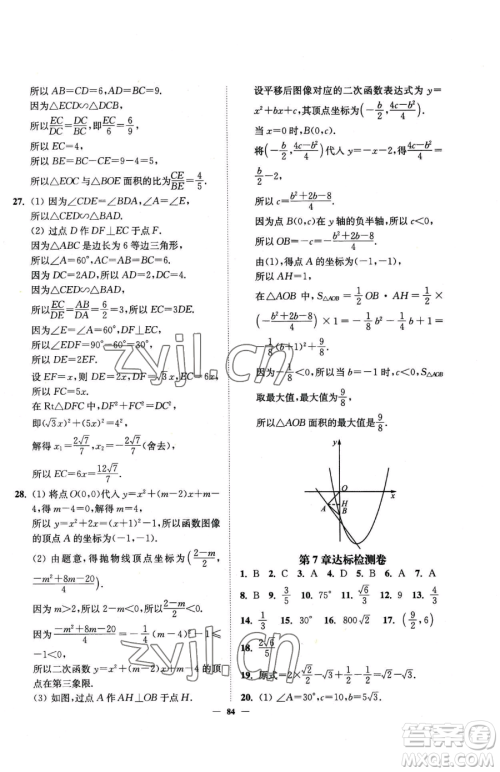 所以 AB=CD=6，AD=BC=9.
因为△ECD∽△DCB，
所以EC/DC=DC/BC，即EC/6=6/9.
所以 EC=4.
所以 BE=BC－EC=5.
所以△EOC 与△BOE 面积的比为CE/BE=4/5.
27. (1) 因为∠CDE=∠BDA，∠A=∠E，
所以△CED∽△BAD.
(2) 过点 D 作 DF⊥EC 于点 F.
因为△ABC 是边长为 6 等边三角形，
所以∠A=60°，AC=AB=6.
因为 DC=2AD，所以 AD=2，DC=4.
因为△CED∽△BAD，
所以EC/DE=AB/DA=6/2=3. 所以 EC=3DE.
因为∠E=∠A=60°，DF⊥EC，
所以∠EDF=90°－60°=30°.
所以 DE=2EF.
设 EF=x，则 DE=2x，DF=√3x，EC=6x，
所以 FC=5x.
在 Rt△DFC 中，DF²+FC²=DC²，
即(√3x)²+(5x)²=4²，
解得 x₁=2√7/7，x₂=－2√7/7(舍去)，
所以 EC=6x=12√7/7.
28. (1) 将点 O(0,0)代入 y=x²+(m－2)x+m－
4，得 m－4=0，解得 m=4，
所以 y=x²+2x，所以函数图像
的顶点 A 的坐标为(－1，－1).
(2) 由题意，得抛物线顶点坐标为(2－m/2，
－m²+8m－20/4).
因为 m＞2，所以 2－m＜0，所以2－m/2＜0.
因为－m²+8m－20/4=－1/4(m－4)²－1≤
－1＜0，
所以二次函数 y=x²+(m－2)x+m－4 的
顶点在第三象限.
(3) 如图，过点 A 作 AH⊥OB 于点 H.
设平移后图像对应的二次函数表达式为 y=
x²+bx+c，其顶点坐标为(－b/2，4c－b²/4).
当 x=0 时，B(0，c).
将(－b/2，4c－b²/4)代入 y=x－2，
解得 c=b²+2b－8/4.
因为点 B(0，c)在 y 轴的负半轴，
所以 OB=－c=－b²+2b－8/4.
由(1)，得点 A 的坐标为(－1，－1)，
所以 AH=1.
在△AOB 中，S△AOB=1/2 OB·AH=1/2×
(－b²+2b－8/4)×1=－1/8b²－1/4b+1=
－1/8(b+1)²+9/8.
因为－1/8＜0，所以当 b=－1 时，S△AOB
取最大值，最大值为9/8，
所以△AOB 面积的最大值为9/8.
y
O
x
A
H
B
第 7 章达标检测卷
1. B 2. C 3. A 4. D 5. B 6. A 7. A
8. B 9. 3/5 10. 75° 11. √3/2 12. 9 13. 3/4
14. 1/3 15. 30° 16. 800√2 17. (9/2，6)
18. 2√6/5
20. (1) ∠A=30°，c=10，b=5√3.
84
zyjl.cn